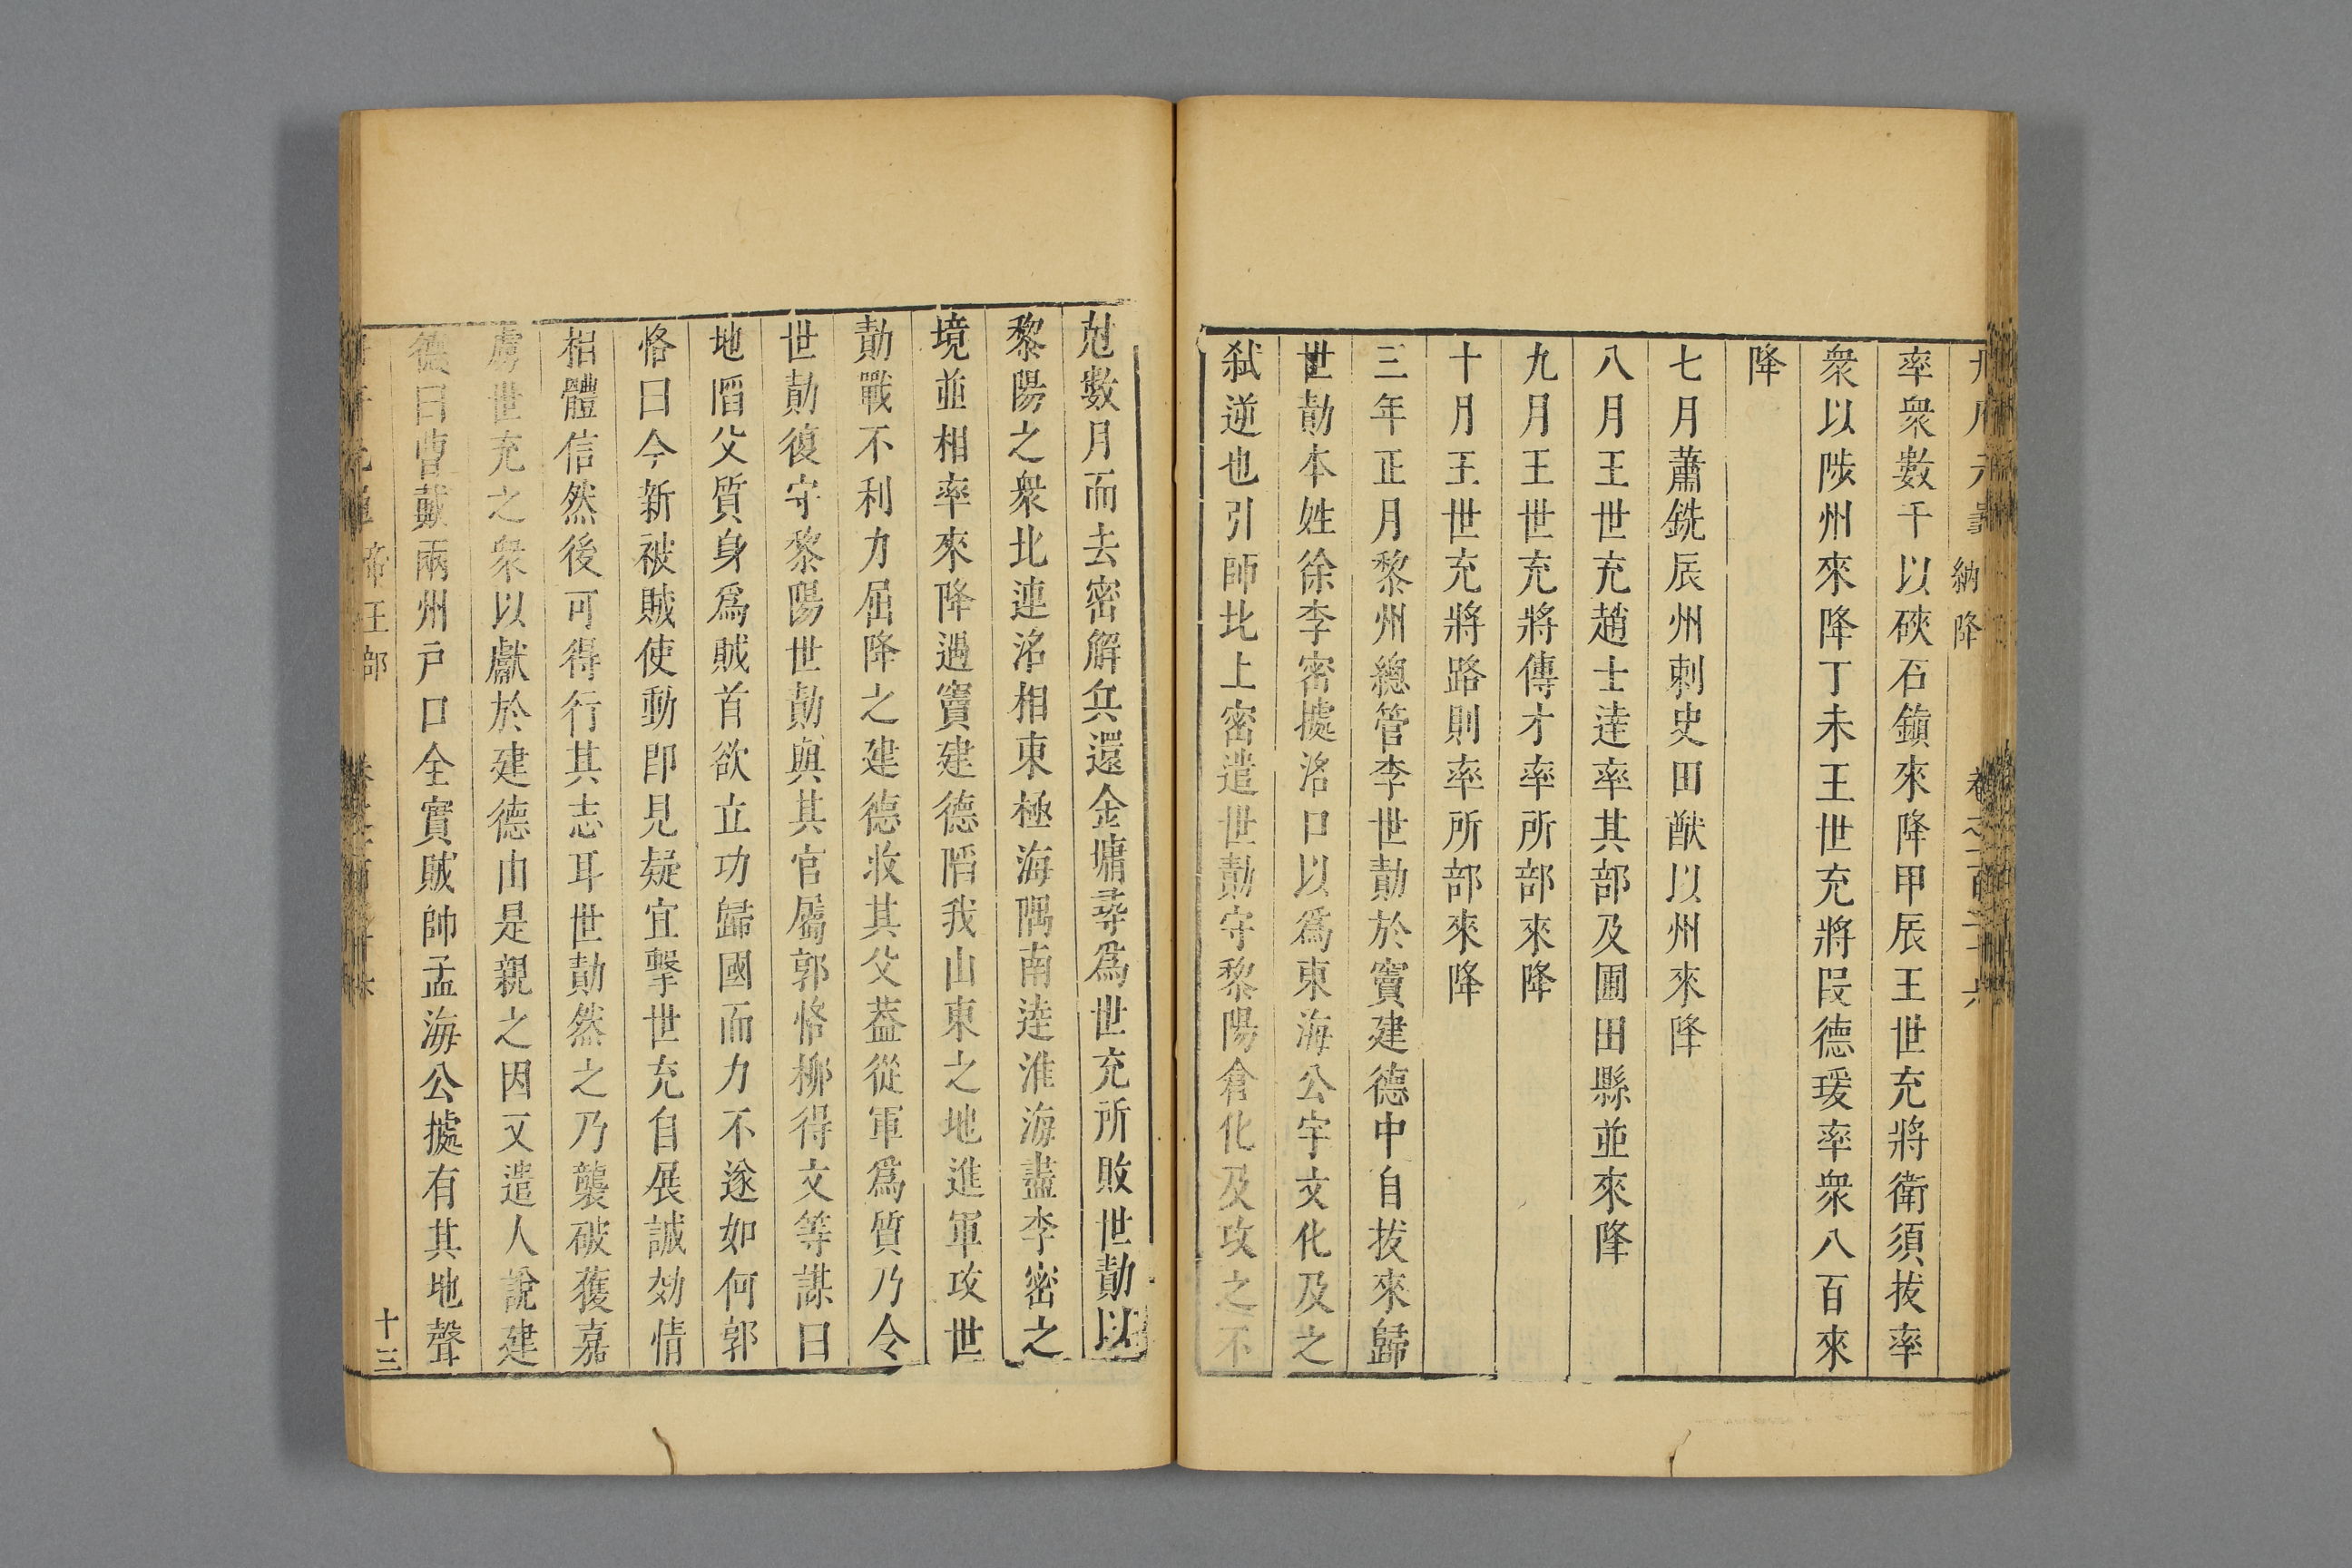 納降
率衆數千以硤石鎮來降甲辰王世充將衛須拔率
衆以陟州來降丁未王世充將叚德瑗率衆八百來
降
七月蕭銑辰州刺史田猷以州來降
八月王世充趙士逹率其部及圃田縣並來降
九月王世充將傳才率所部來降
十月王世充將路則率所部來降
三年正月黎州總管李世勣於竇建德中自拔來歸
世勣本姓徐李密㨿洛口以爲東海公宇文化及之
弑逆也引師北上密遣世勣守黎陽倉化及攻之不
尅數月而去密解兵還金墉尋爲世充所敗世勣以
黎陽之衆北連洺相東極海隅南逹淮海盡李密之
境並相率來降遇竇建德䧟我山東之地進軍攻世
勣戰不利力屈降之建德收其父葢從軍爲質乃令
世勣復守黎陽世勣與其官屬郭恪柳得文等謀曰
地䧟父質身爲賊首欲立功歸國而力不遂如何郭
恪曰今新被賊使動即見疑宜擊世充自展誠効情
相體信然後可得行其志耳世勣然之乃襲破獲嘉
虜世充之衆以獻於建德由是親之因又遣人說建
德曰曹戴兩州戸口全實賊帥孟海公㨿有其地聲
帝王部
十三